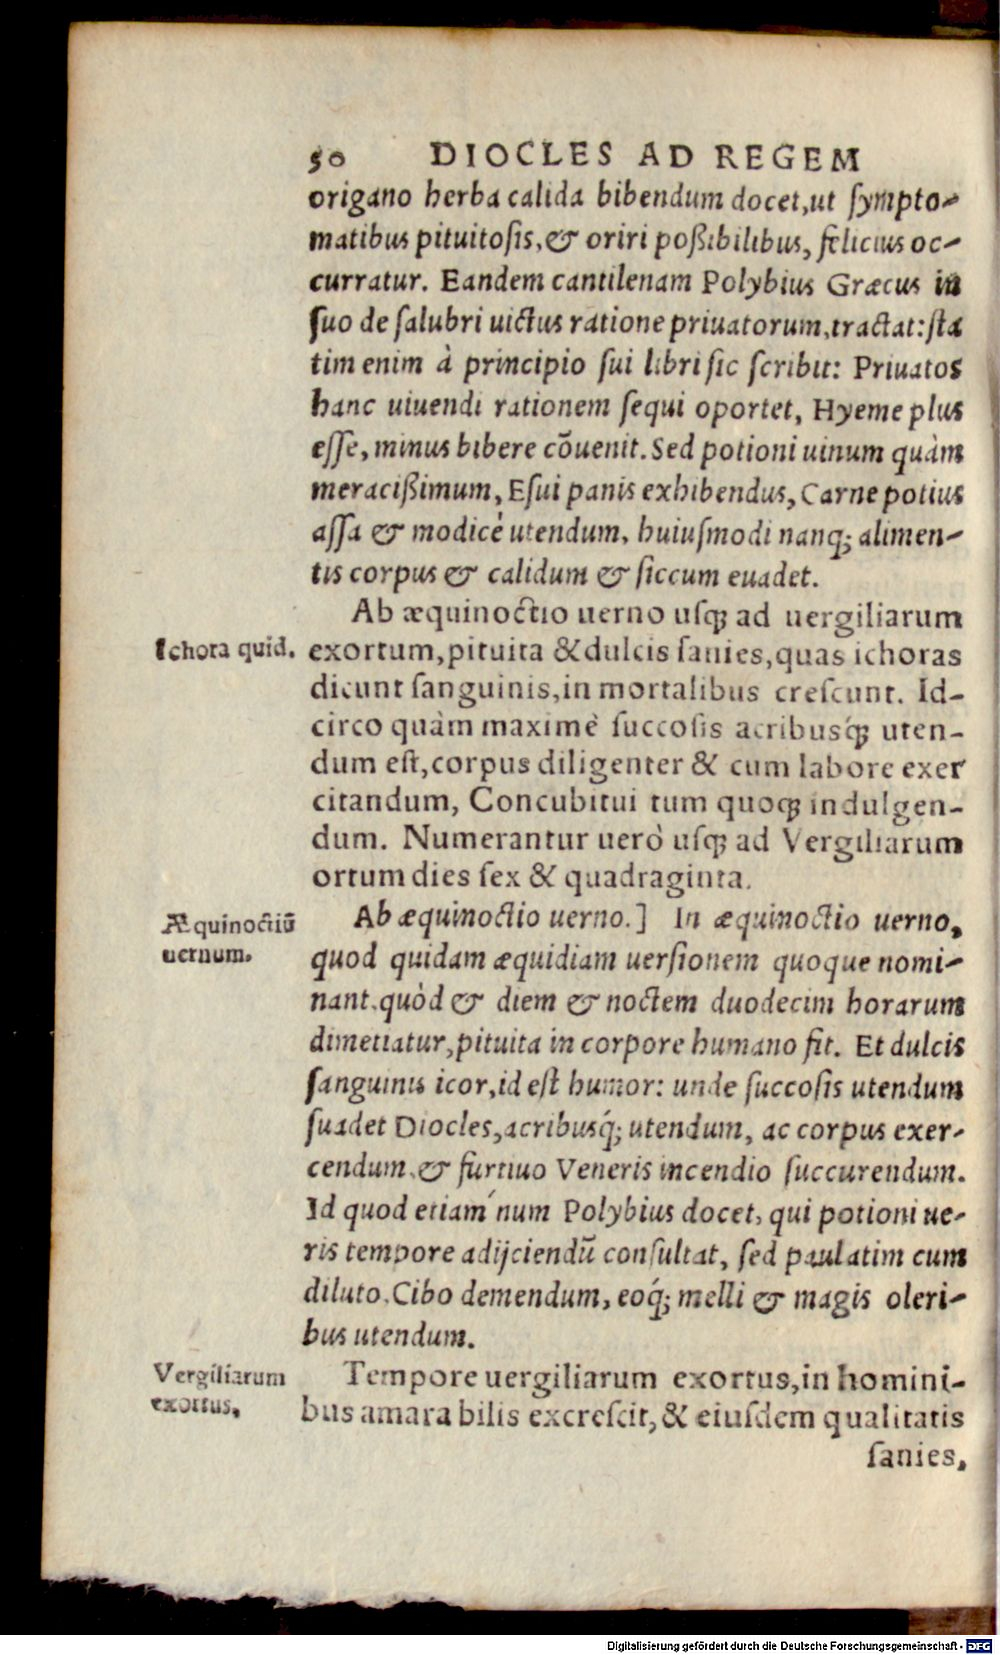 50 DIOCLES AD REGEM
origano herba calida bibendum docet,ut ſympto-
matibus pituitoſis,& oriri poßibilibus, felicius oc-
curratur. Eandem cantilenam Polybius Græcus in
ſuo de ſalubri uictus ratione priuatorum,tractat:ſta
tim enim à principio ſui libri ſic ſcribit: Priuatos
hanc uiuendi rationem ſequi oportet, Hyeme plus
eſſe, minus bibere cõuenit. Sed potioni uinum quàm
meracißimum, Eſui panis exhibendus, Carne potius
aſſa & modicè utendum, huiuſmodi nanq; alimen-
tis corpus & calidum & ſiccum euadet.
Ab æquinoctio uerno uſq; ad uergiliarum
Ichora quid. exortum,pituita & dulcis ſanies,quas ichoras
dicunt ſanguinis,in mortalibus creſcunt. Id-
circo quàm maximè ſuccoſis acribusq́; uten-
dum eſt,corpus diligenter & cum labore exer
citandum, Concubitui tum quoq; indulgen-
dum. Numerantur uerò uſq; ad Vergiliarum
ortum dies ſex & quadraginta.
Æquinoctiũ Ab æquinoctio uerno.] In æquinoctio uerno,
uernum. quod quidam æquidiam uerſionem quoque nomi-
nant.quòd & diem & noctem duodecim horarum
dimetiatur,pituita in corpore humano fit. Et dulcis
ſanguinis icor,id eſt humor: unde ſuccoſis utendum
ſuadet Diocles,acribusq́; utendum, ac corpus exer-
cendum,& furtiuo Veneris incendio ſuccurendum.
Id quod etiaḿ num Polybius docet, qui potioni ue-
ris tempore adijciendũ conſultat, ſed paulatim cum
diluto.Cibo demendum, eoq́; melli & magis oleri-
bus utendum.
Vergiliarum Tempore uergiliarum exortus,in homini-
exortus. bus amara bilis excreſcit,& eiuſdem qualitatis
ſanies,
Digitalisierung gefördert durch die Deutsche Forschungsgemeinschaft - DFG